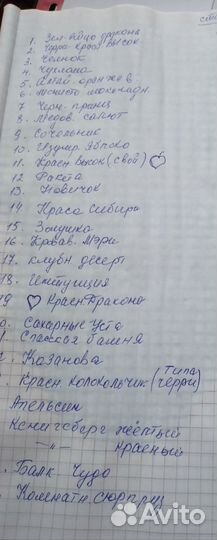 сти
1. Зел. яйцо дракона
2. Черри красн высок
3. Челнок
4. Чухлома
5. Китай. оранжев
6. Мясисто
7. Черн. принц
8. Медов. салют
9. Сочельник
10. Изумр. Яблоко
11. Красн Высок (свой)
12. Ракета
13. Новичок
14. Краса Сибири
15. Золушка
16. Кровав. Мэри
17. клубн десерт
18. Интуиция
19 Красн Драконы
0. Сахарные Уста
1. Спасская Башня
2. Казанова
. Красн. колокольчик (Типа черри)
Апельсин
Кенигсберг жёлтый
—"— Красный
. Балк. Чудо
. Комнатн. сюрприз
Avito